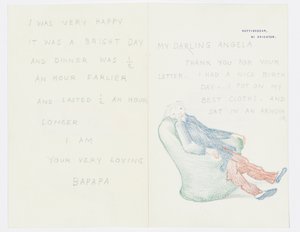 ROTTINGDEAN,
NR BRIGHTON.
MY DARLING ANGELA
THANK YOU FOR YOUR
LETTER. I HAD A NICE BIRTH
DAY. I PUT ON MY
BEST CLOTHS. AND
SAT IN AN ARMCHA
IR
I WAS VERY HAPPY
IT WAS A BRIGHT DAY
AND DINNER WAS ½
AN HOUR EARLIER
AND LASTED ½ AN HOUR
LONGER
I AM
YOUR VERY LOVING
BAPAPA